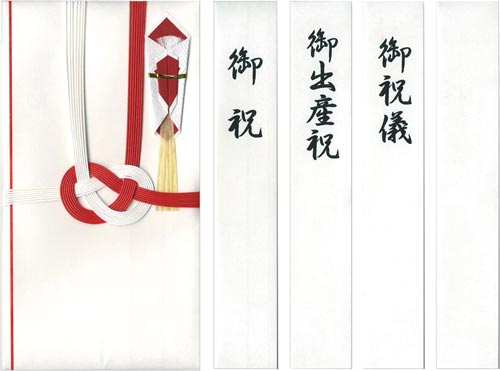 御祝
御出産祝
御祝儀